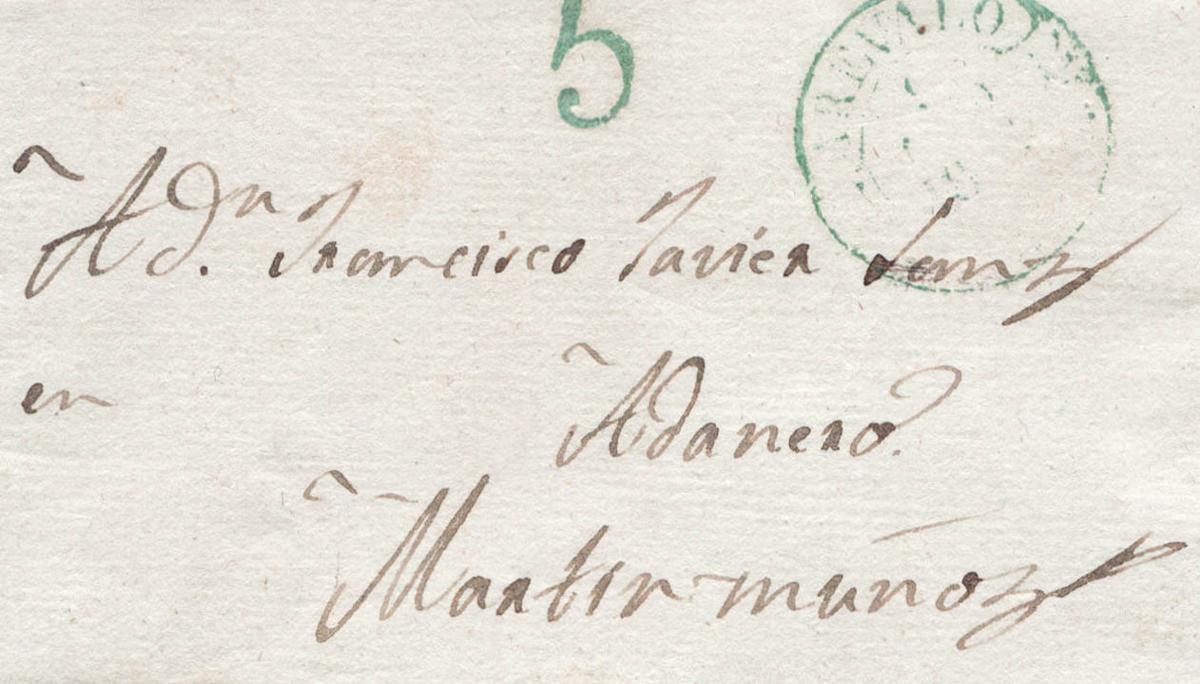 5
AREVALO
A d.n Francisco Javier Sanz
en Adanero.
Martin muñoz